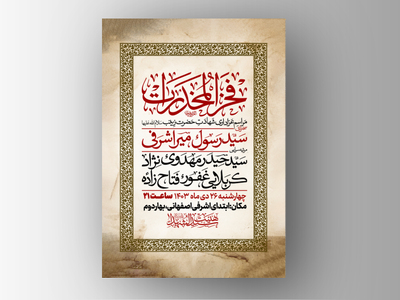 فخر المخدرات
مراسم عزاداری شهادت حضرت زینب سلام الله علیها
سید رسول میراشرفی
سید حیدر مهدوی نژاد
کربلایی غفور فتاح زاده
چهارشنبه ۲۶ دی ماه ۱۴۰۳ ساعت ۲۱
مکان: ابتدای اشرفی اصفهانی، بهار دوم